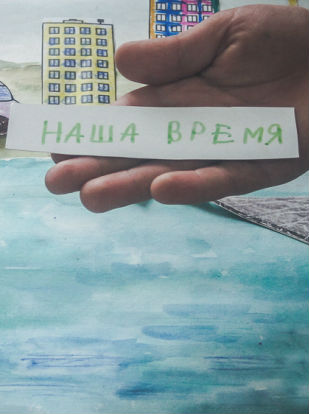 НАША ВРЕМЯ